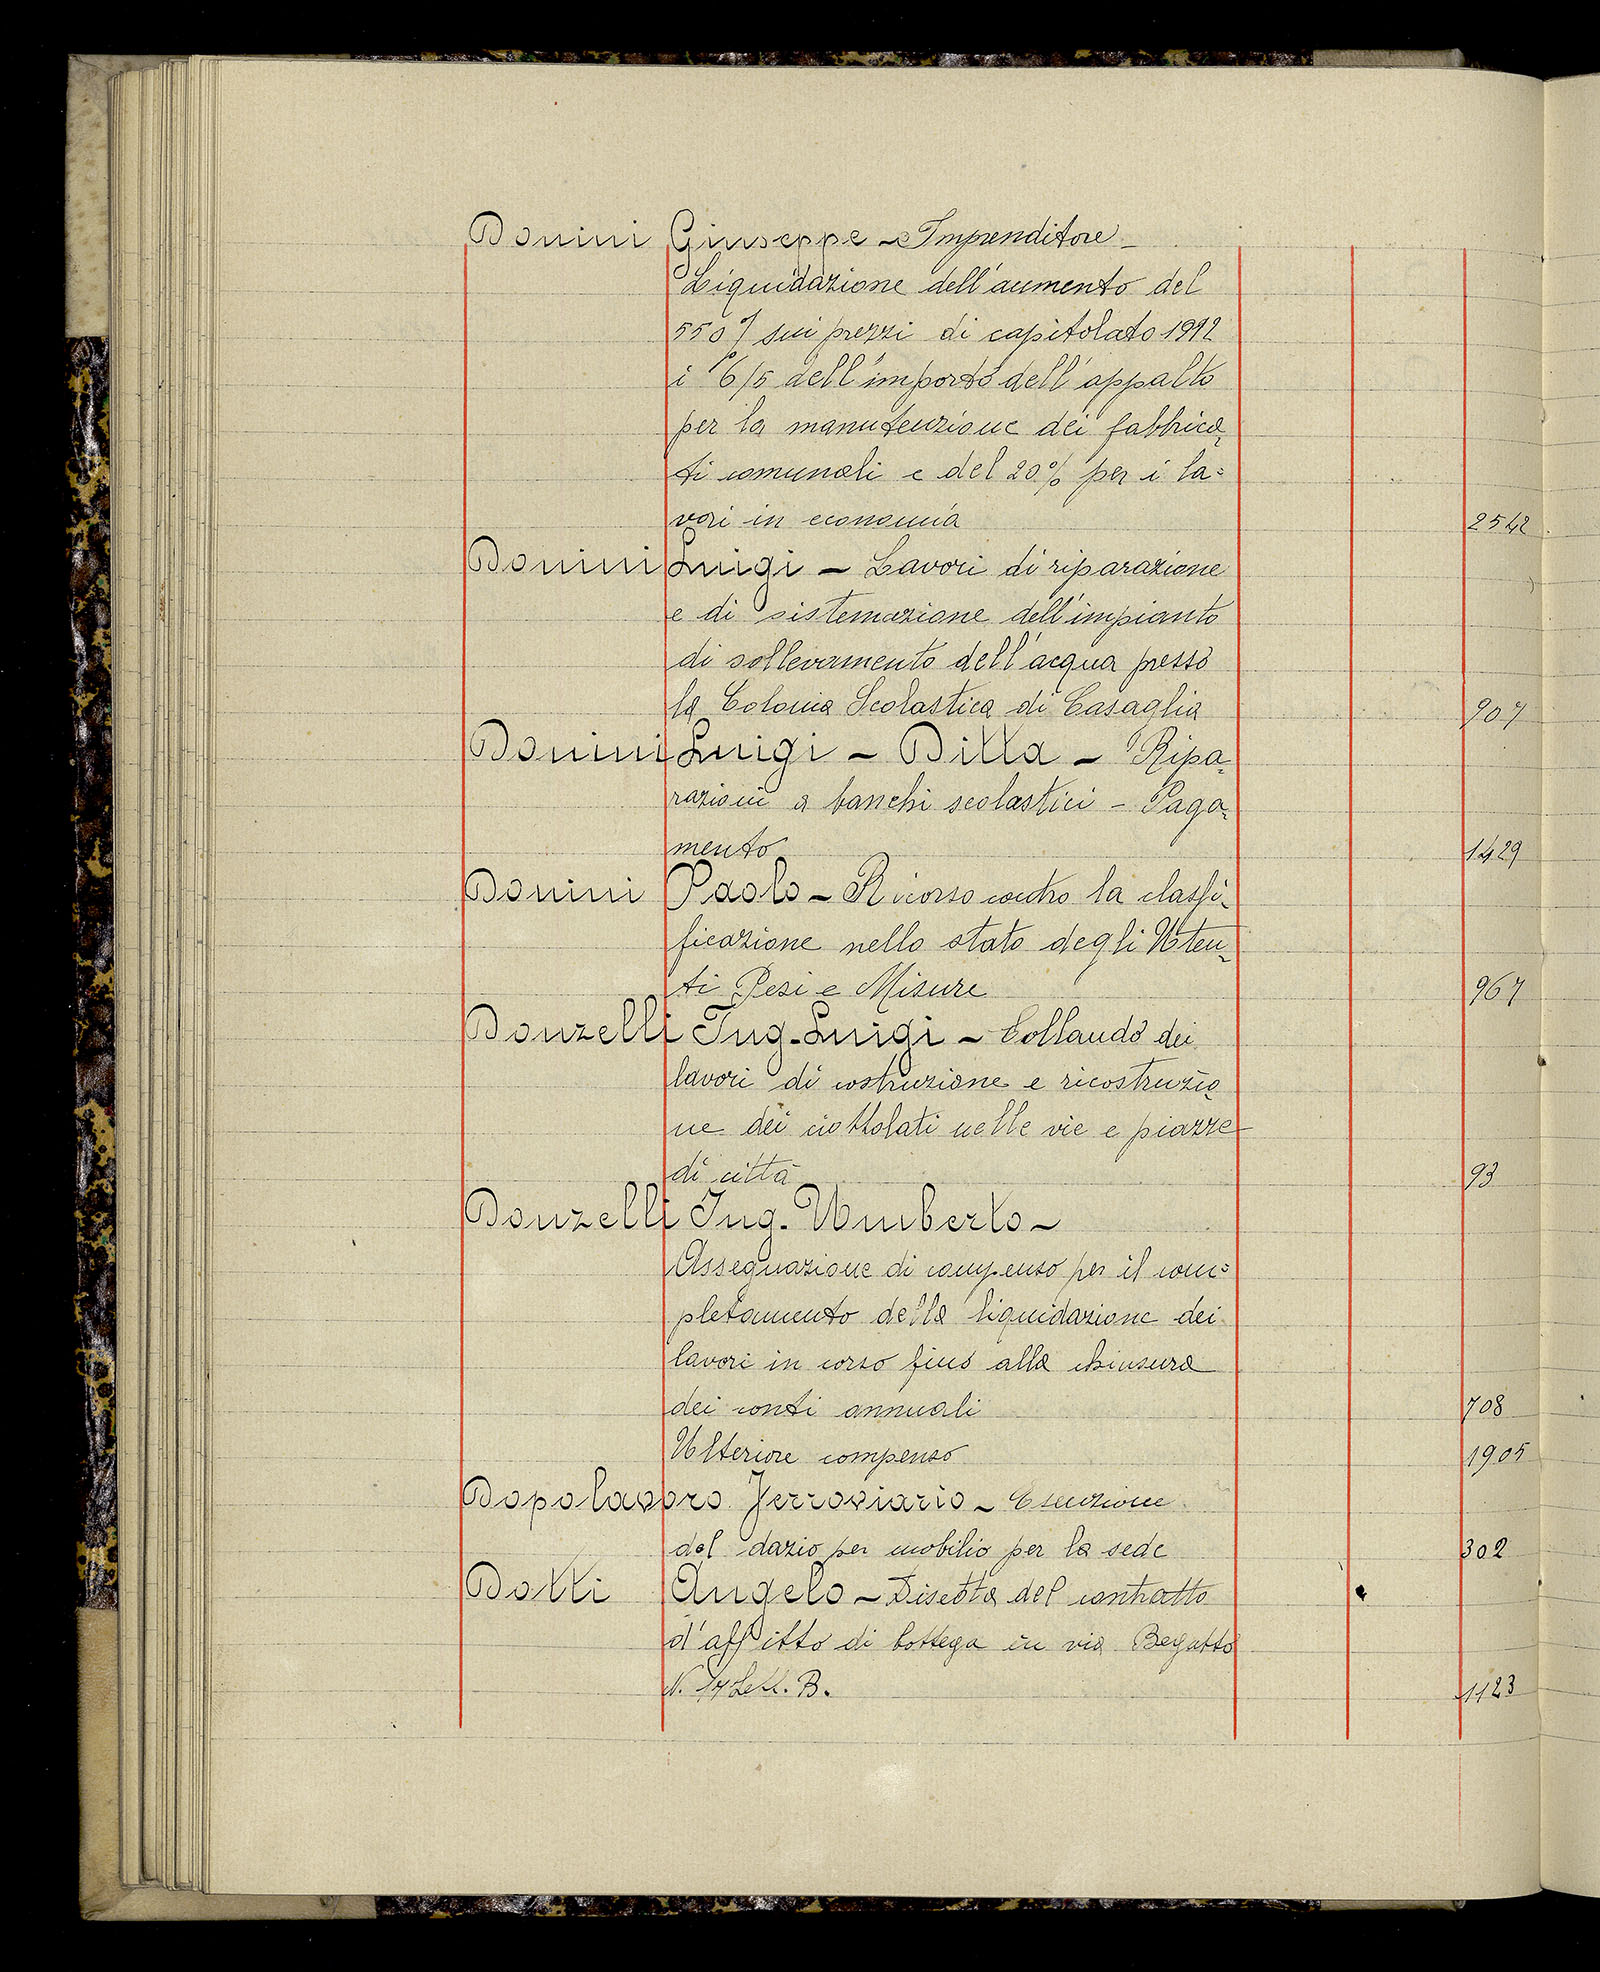 Donini Giuseppe - Imprenditore -
Liquidazione dell'aumento del
550% sui prezzi di capitolato 1912
i 6/5 dell'importo dell'appalto
per la manutenzione dei fabbrica-
ti comunali e del 20% per i la=
vori in economia 2542
Donini Luigi - Lavori di riparazione
e di sistemazione dell'impianto
di sollevamento dell'acqua presso
la Colonia Scolastica di Casaglia 907
Donini Luigi - Ditta - Ripa-
razioni a banchi scolastici - Paga-
mento 1429
Donini Paolo - Ricorso contro la classi-
ficazione nello stato degli Uten-
ti Pesi e Misure 967
Donzelli Ing. Luigi - Collaudo dei
lavori di costruzione e ricostruzio-
ne dei ciottolati nelle vie e piazze
di città 93
Donzelli Ing. Umberto -
Assegnazione di compenso per il com=
pletamento della liquidazione dei
lavori in corso fino alla chiusura
dei conti annuali 708
Ulteriore compenso 1905
Dopolavoro Ferroviario - Esenzione
del dazio per mobilio per la sede 302
Dotti Angelo - Disetta del contratto
d'affitto di bottega in via Begatto
N. 17 Lett. B. 1123